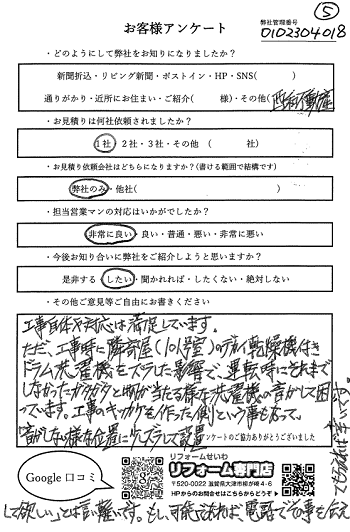 ⑤
お客様アンケート
弊社管理番号
0102304018
・どのようにして弊社をお知りになりましたか？
新聞折込・リビング新聞・ポストイン・HP・SNS(　　　)
通りがかり・近所にお住まい・ご紹介(　　　様)・その他(　　不動産
・お見積りは何社依頼されましたか？
1社　2社・3社・その他　(　　　社)
・お見積り依頼会社はどちらになりますか？(書ける範囲で結構です)
弊社のみ・他社(　　　)
・担当営業マンの対応はいかがでしたか？
非常に良い・良い・普通・悪い・非常に悪い
・今後お知り合いに弊社をご紹介しようと思いますか？
是非する・したい・聞かれれば・したくない・絶対しない
・その他ご意見等ご自由にお書きください
工事自体や対応は満足しています。
ただ、工事時に隣部屋(101号室)のデカイ乾燥機付き
ドラム洗濯機をズラした影響で、運転時にそれまで
しなかったガタガタと物が当たる様な洗濯機の音がして困
っています。工事のキッカケを作った側という事もあって、
「音がしない様な位置に少しズラして設置
アンケートのご協力ありがとうございました
して欲しい」とは言い難いです。もし、可能であれば、電話でその事を伝え
Google 口コミ
リフォームせいわ
リフォーム専門店
〒520-0022 滋賀県大津市柳が崎4-6
HPからのお問合せはこちらからどうぞ